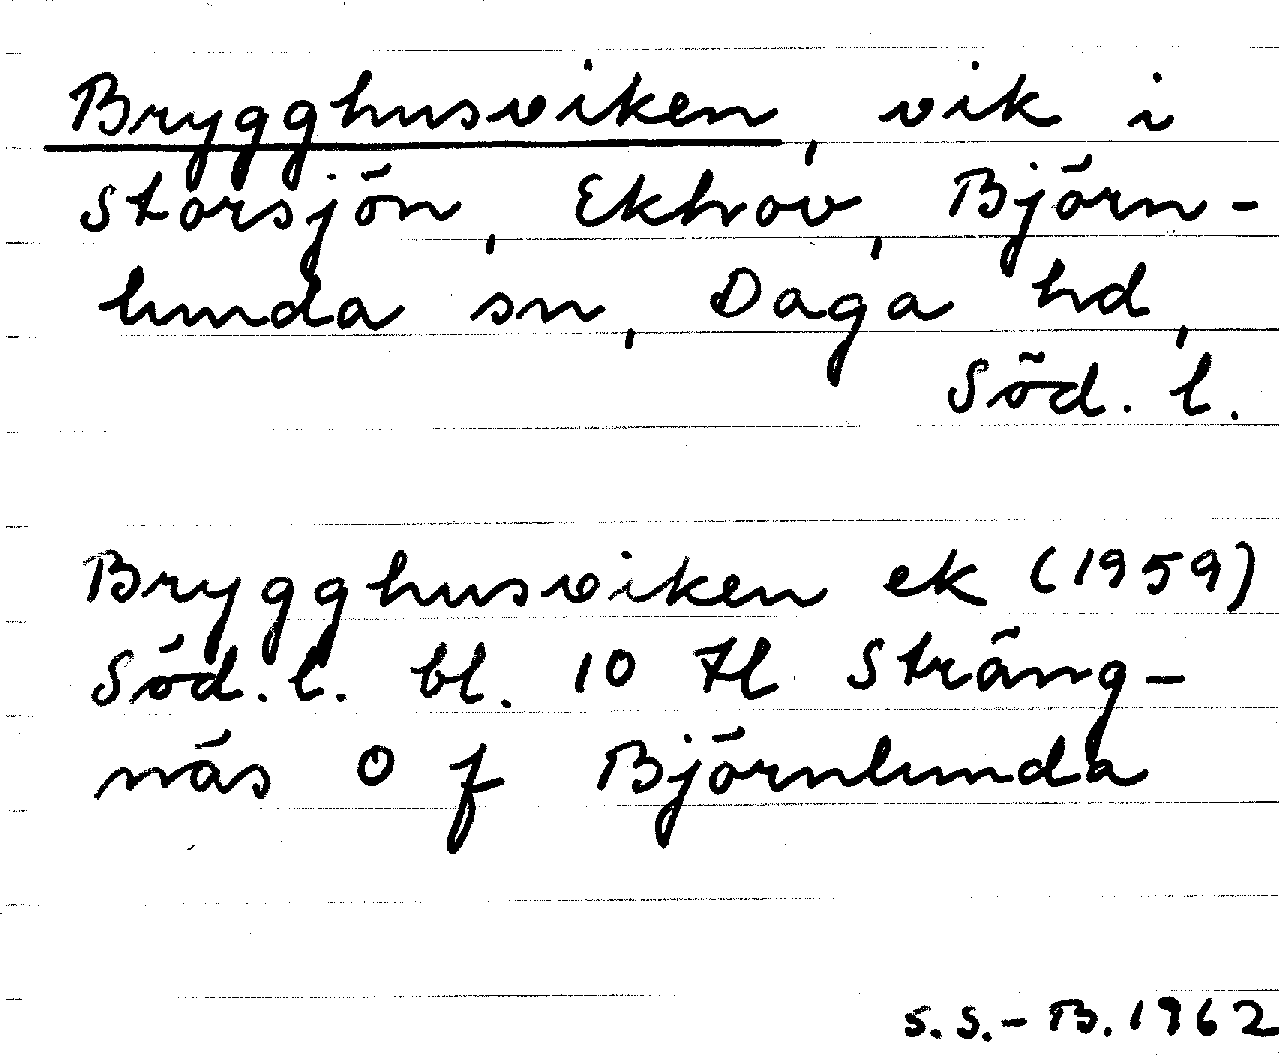 Brygghusviken, vik i
Storsjön, Ekhov, Björn-
lunda sn, Daga hd,
Söd. l.
Brygghusviken ek (1959)
Söd. l. bl. 10 Hl Sträng-
näs O f Björnlunda
S. S.-B. 1962